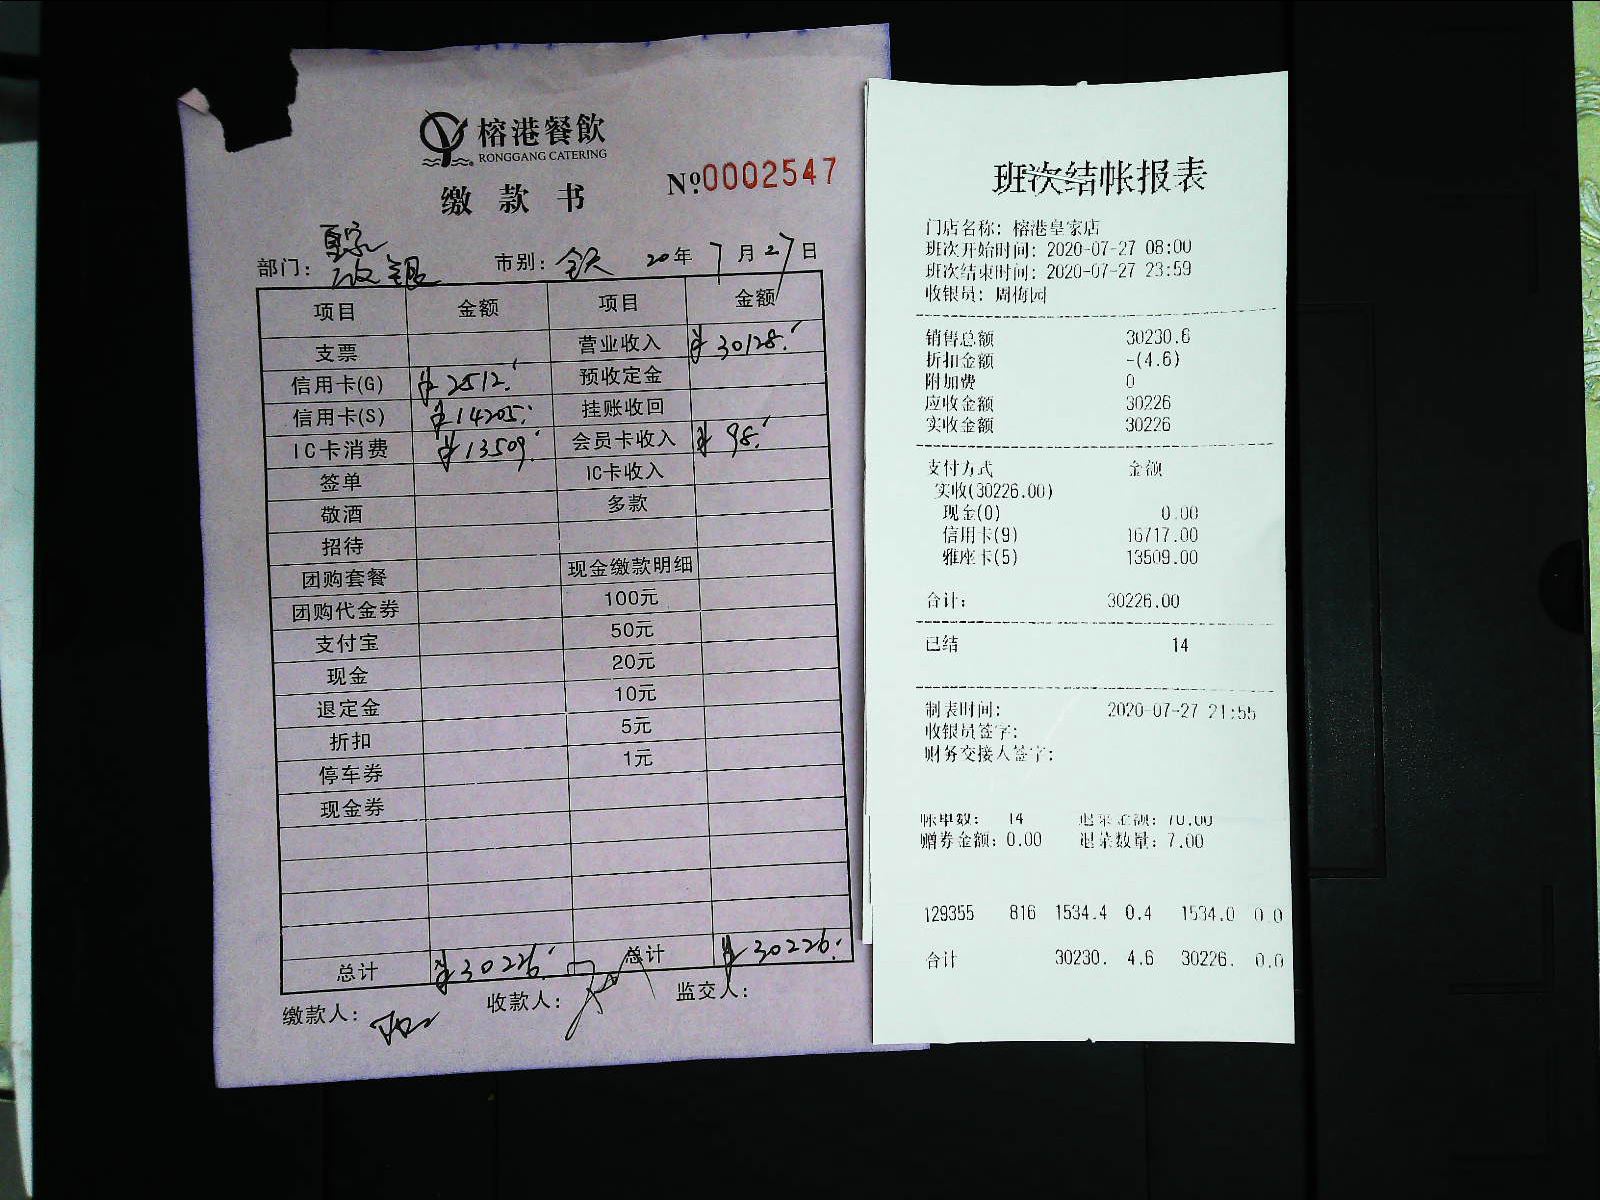 榕港餐飲
RONGGANG CATERING
缴款书
№0002547
部门： 皇家 收银 市别： 全天 20年 7月27日
项目 金额 项目 金额
支票 营业收入 ¥30128.
信用卡(G) ¥2512. 预收定金
信用卡(S) ¥14205. 挂账收回
IC卡消费 ¥13509. 会员卡收入 ¥98.
签单 IC卡收入
敬酒 多款
招待
团购套餐 现金缴款明细
团购代金券 100元
支付宝 50元
现金 20元
退定金 10元
折扣 5元
停车券 1元
现金券
总计 ¥30226. 总计 ¥30226.
缴款人： 收款人： 监交人：
班次结帐报表
门店名称: 榕港皇家店
班次开始时间: 2020-07-27 08:00
班次结束时间: 2020-07-27 23:59
收银员: 周梅园
销售总额 30230.6
折扣金额 -(4.6)
附加费 0
应收金额 30226
实收金额 30226
支付方式 金额
实收(30226.00)
现金(0) 0.00
信用卡(9) 16717.00
雅座卡(5) 13509.00
合计: 30226.00
已结 14
制表时间: 2020-07-27 21:55
收银员签字:
财务交接人签字:
帐单数: 14 退菜金额: 70.00
赠券金额: 0.00 退菜数量: 7.00
129355 816 1534.4 0.4 1534.0 0.0
合计 30230. 4.6 30226. 0.0